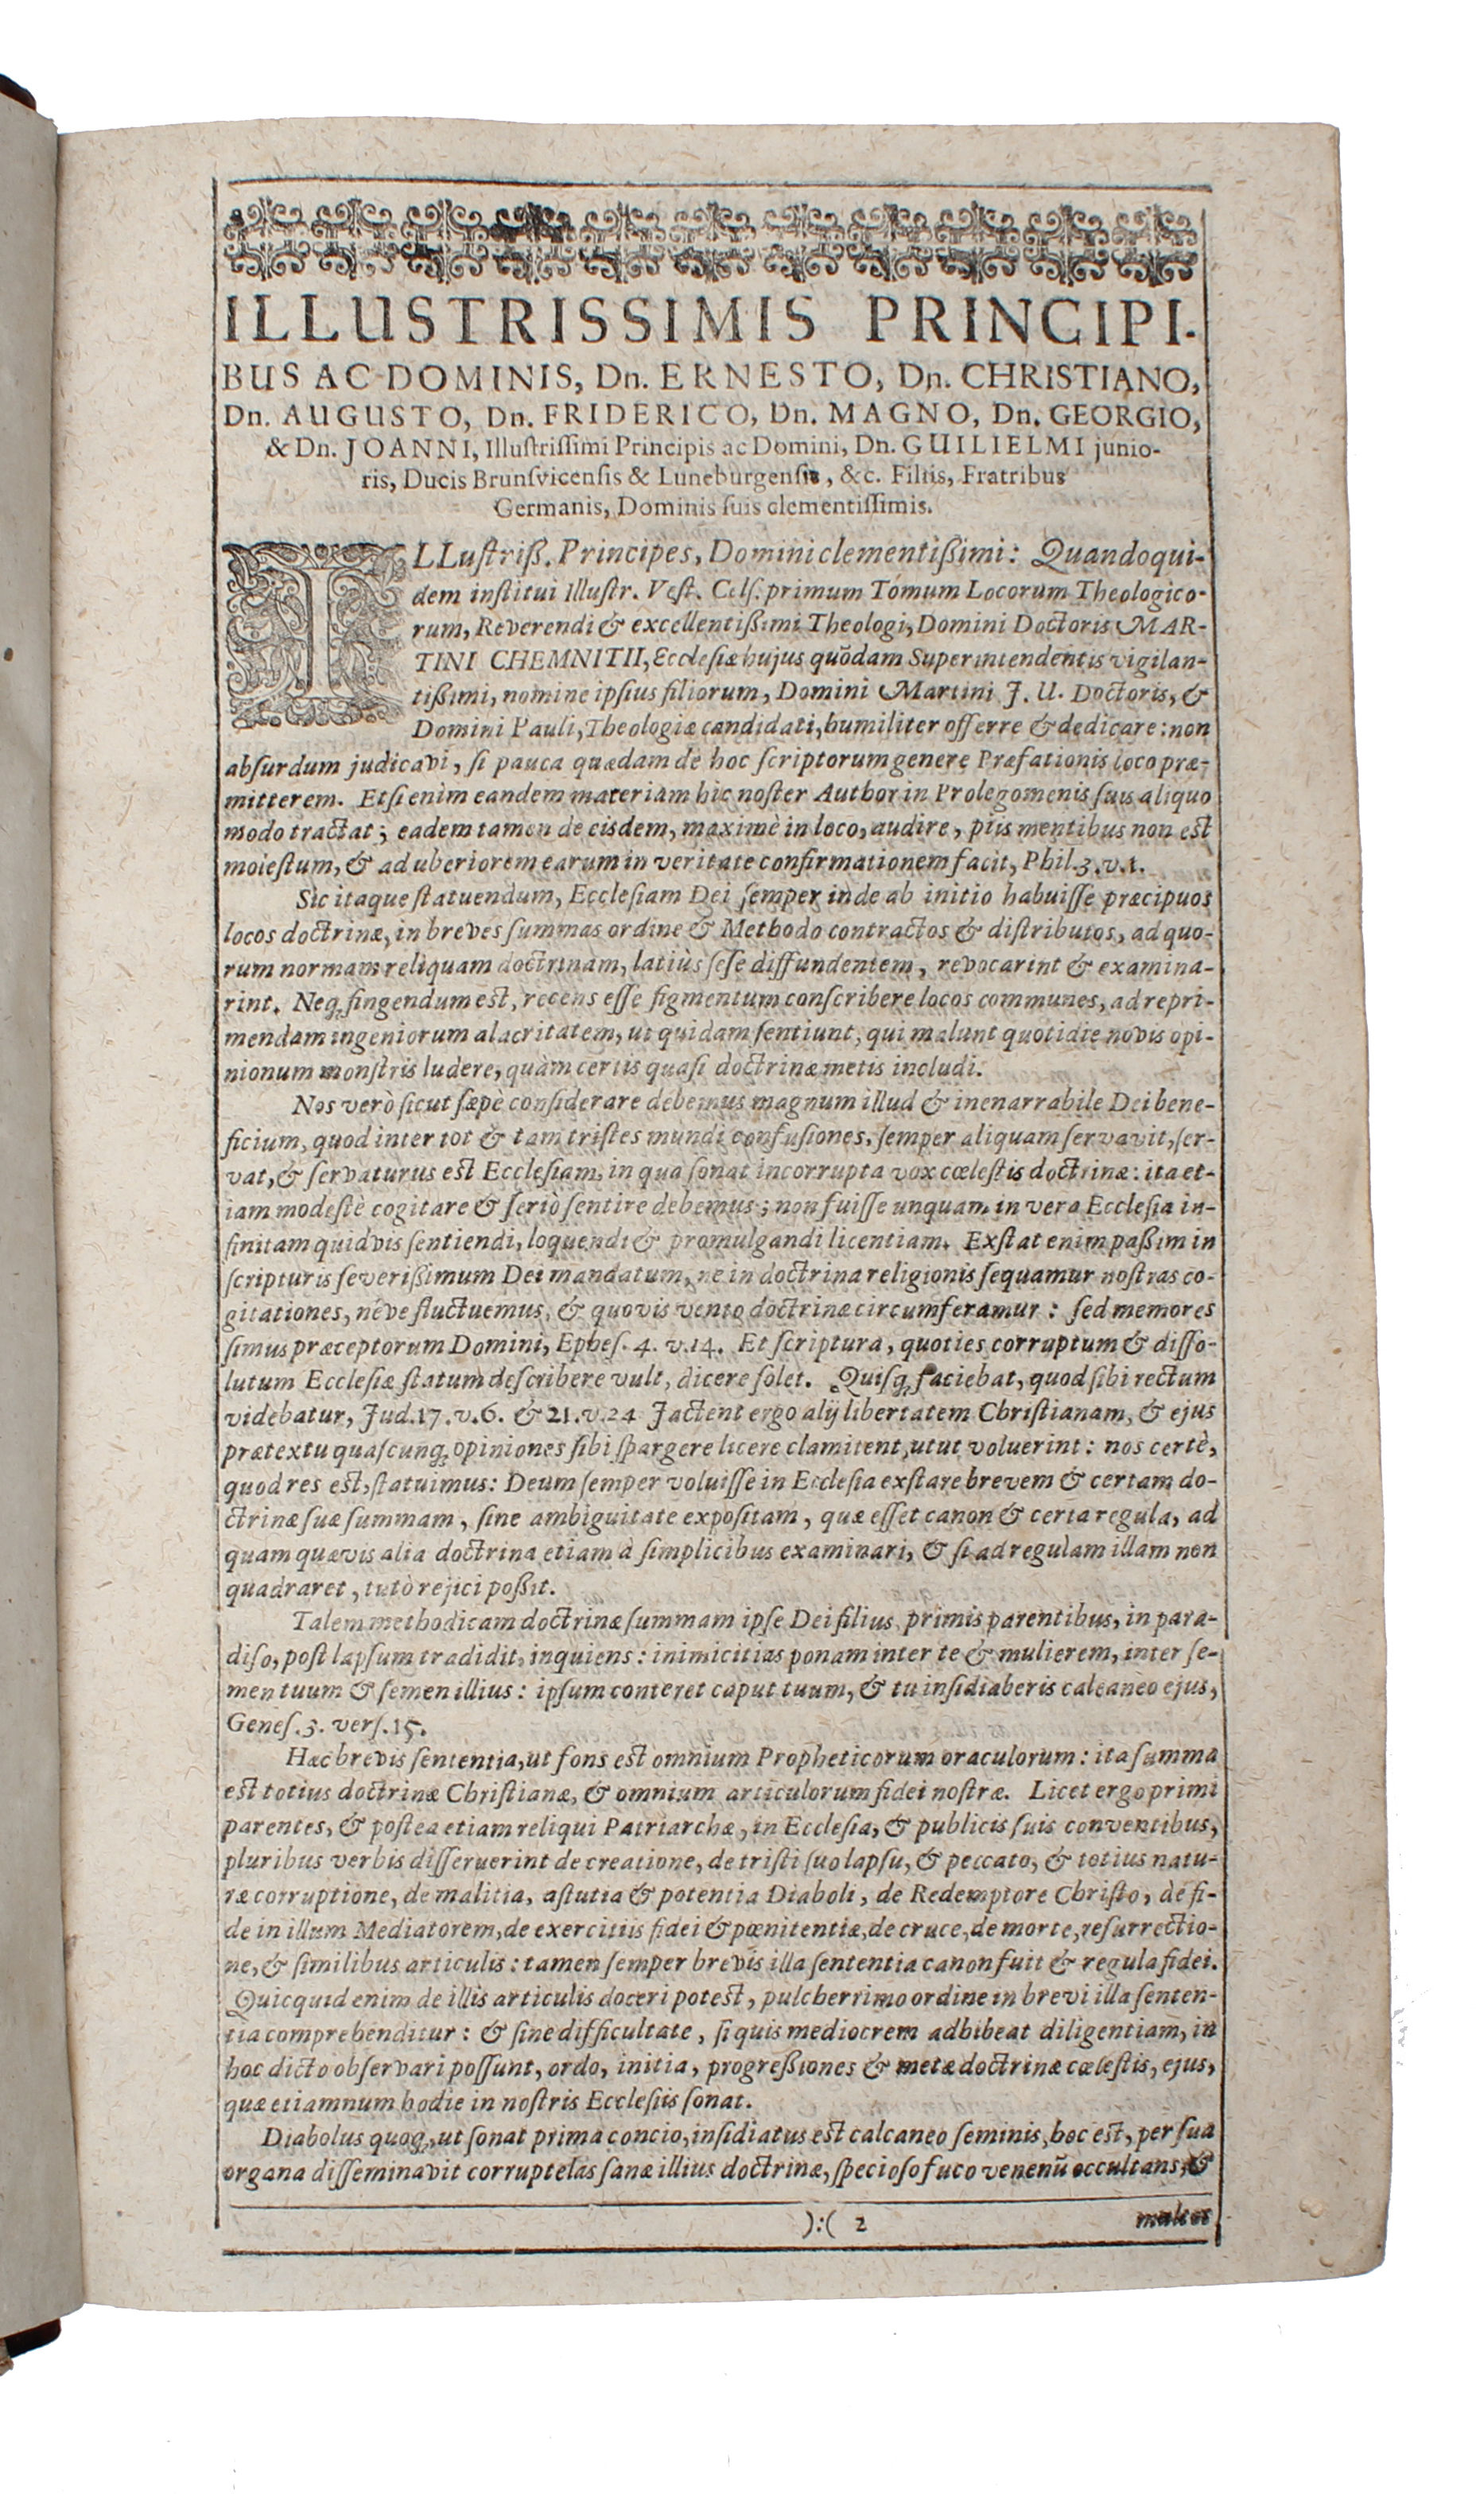 ILLUSTRISSIMIS PRINCIPI-
BUS AC DOMINIS, Dn. ERNESTO, Dn. CHRISTIANO,
Dn. AUGUSTO, Dn. FRIDERICO, Dn. MAGNO, Dn. GEORGIO,
& Dn. JOANNI, Illuſtriſſimi Principis ac Domini, Dn. GUILIELMI junio-
ris, Ducis Brunſvicenſis & Luneburgenſis, &c. Filiis, Fratribus
Germanis, Dominis ſuis clementiſſimis.
ILLuſtriß. Principes, Domini clementißimi: Quandoqui-
dem inſtitui Illuſtr. Veſt. Celſ. primum Tomum Locorum Theologico-
rum, Reverendi & excellentißimi Theologi, Domini Doctoris MAR-
TINI CHEMNITII, Eccleſiæ hujus quõdam Superintendentis vigilan-
tißimi, nomine ipſius filiorum, Domini Martini J. U. Doctoris, &
Domini Pauli, Theologiæ candidati, humiliter offerre & dedicare: non
abſurdum judicavi, ſi pauca quædam de hoc ſcriptorum genere Præfationis loco præ-
mitterem. Etſi enim eandem materiam hic noſter Author in Prolegomenis ſuis aliquo
modo tractat; eadem tamen de eisdem, maximè in loco, audire, piis mentibus non est
moleſtum, & ad uberiorem earum in veritate confirmationem facit, Phil. 3. v. 1.
Sic itaque ſtatuendum, Eccleſiam Dei ſemper inde ab initio habuiſſe præcipuos
locos doctrinæ, in breves ſummas ordine & Methodo contractos & diſtributos, ad quo-
rum normam reliquam doctrinam, latiùs ſeſe diffundentem, revocarint & examina-
rint. Neq; fingendum est, recens eſſe figmentum conſcribere locos communes, ad repri-
mendam ingeniorum alacritatem, ut quidam ſentiunt, qui malunt quotidie novis opi-
nionum monſtris ludere, quàm certis quaſi doctrinæ metis includi.
Nos verò ſicut ſæpè conſiderare debemus magnum illud & inenarrabile Dei bene-
ficium, quod inter tot & tam triſtes mundi confuſiones, ſemper aliquam ſervavit, ſer-
vat, & ſervaturus est Eccleſiam, in qua ſonat incorrupta vox cœleſtis doctrinæ: ita et-
iam modeſtè cogitare & ſeriò ſentire debemus; non fuiſſe unquam in vera Eccleſia in-
finitam quidvis ſentiendi, loquendi & promulgandi licentiam. Exſtat enim paßim in
ſcripturis ſeverißimum Dei mandatum, ne in doctrina religionis ſequamur noſtras co-
gitationes, néve fluctuemus, & quovis vento doctrinæ circumferamur: ſed memores
ſimus præceptorum Domini, Epheſ. 4. v. 14. Et ſcriptura, quoties corruptum & diſſo-
lutum Eccleſiæ ſtatum deſcribere vult, dicere ſolet. Quiſq; faciebat, quod ſibi rectum
videbatur, Jud. 17. v. 6. & 21. v. 24 Jactent ergo alij libertatem Chriſtianam, & ejus
prætextu quaſcunq; opiniones ſibi ſpargere licere clamitent, utut voluerint: nos certè,
quod res est, ſtatuimus: Deum ſemper voluiſſe in Eccleſia exſtare brevem & certam do-
ctrinæ ſuæ ſummam, ſine ambiguitate expoſitam, quæ eſſet canon & certa regula, ad
quam quævis alia doctrina etiam à ſimplicibus examinari, & ſi ad regulam illam non
quadraret, tutò rejici poßit.
Talem methodicam doctrinæ ſummam ipſe Dei filius primis parentibus, in para-
diſo, poſt lapſum tradidit, inquiens: inimicitias ponam inter te & mulierem, inter ſe-
men tuum & ſemen illius: ipſum conteret caput tuum, & tu inſidiaberis calcaneo ejus,
Geneſ. 3. verſ. 15.
Hæc brevis ſententia, ut fons est omnium Propheticorum oraculorum: ita ſumma
est totius doctrinæ Chriſtianæ, & omnium articulorum fidei noſtræ. Licet ergo primi
parentes, & poſtea etiam reliqui Patriarchæ, in Eccleſia, & publicis ſuis conventibus,
pluribus verbis diſſeruerint de creatione, de triſti ſuo lapſu, & peccato, & totius natu-
ræ corruptione, de malitia, aſtutia & potentia Diaboli, de Redemptore Chriſto, de fi-
de in illum Mediatorem, de exercitiis fidei & pœnitentiæ, de cruce, de morte, reſurrectio-
ne, & ſimilibus articulis: tamen ſemper brevis illa ſententia canon fuit & regula fidei.
Quicquid enim de illis articulis doceri potest, pulcherrimo ordine in brevi illa ſenten-
tia comprehenditur: & ſine difficultate, ſi quis mediocrem adhibeat diligentiam, in
hoc dicto obſervari poſſunt, ordo, initia, progreßiones & metæ doctrinæ cœleſtis, ejus,
quæ etiamnum hodie in noſtris Eccleſiis ſonat.
Diabolus quoq; ut ſonat prima concio, inſidiatus est calcaneo ſeminis, hoc est, per ſua
organa diſſeminavit corruptelas ſanæ illius doctrinæ, ſpecioſo fuco venenũ occultans, &
):( 2